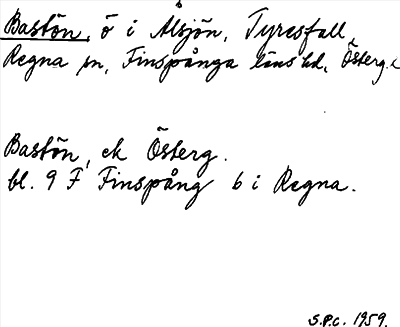 Bastön, ö i Alsjön, Tyresfall,
Regna sn, Finspånga läns hd, Österg.
Bastön, ek Österg.
bl. 9 F Finspång b i Regna.
S.P.C. 1959.